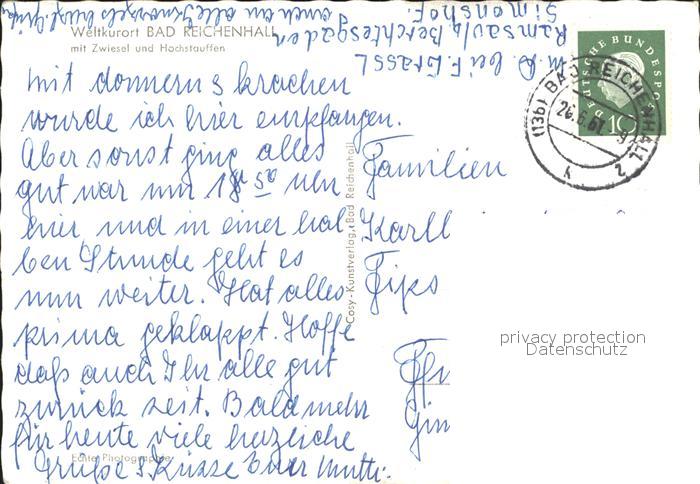 auch an alle
Simonshof.
Ramsau b. Berchtesgaden
z. B. bei F. Grassl
Weltkurort BAD REICHENHALL
mit Zwiesel und Hochstauffen
mit donnern & krachen
wurde ich hier empfangen.
Aber sonst ging alles
gut war um 18 Uhr
hier und in einer hal
ben Stunde geht es
nun weiter. Hat alles
prima geklappt. Hoffe
daß auch Ihr alle gut
zurück seit. Bald mehr
für heute viele herzliche
Grüße & Küsse Euer Mutti.
Familien
Karll
Fips
Gin
Cosy-Kunstverlag, Bad Reichenhall
Echte Photographie
DEUTSCHE BUNDESPOST
10
(13b) BAD REICHENHALL 2
26.6.61
y
privacy protection
Datenschutz